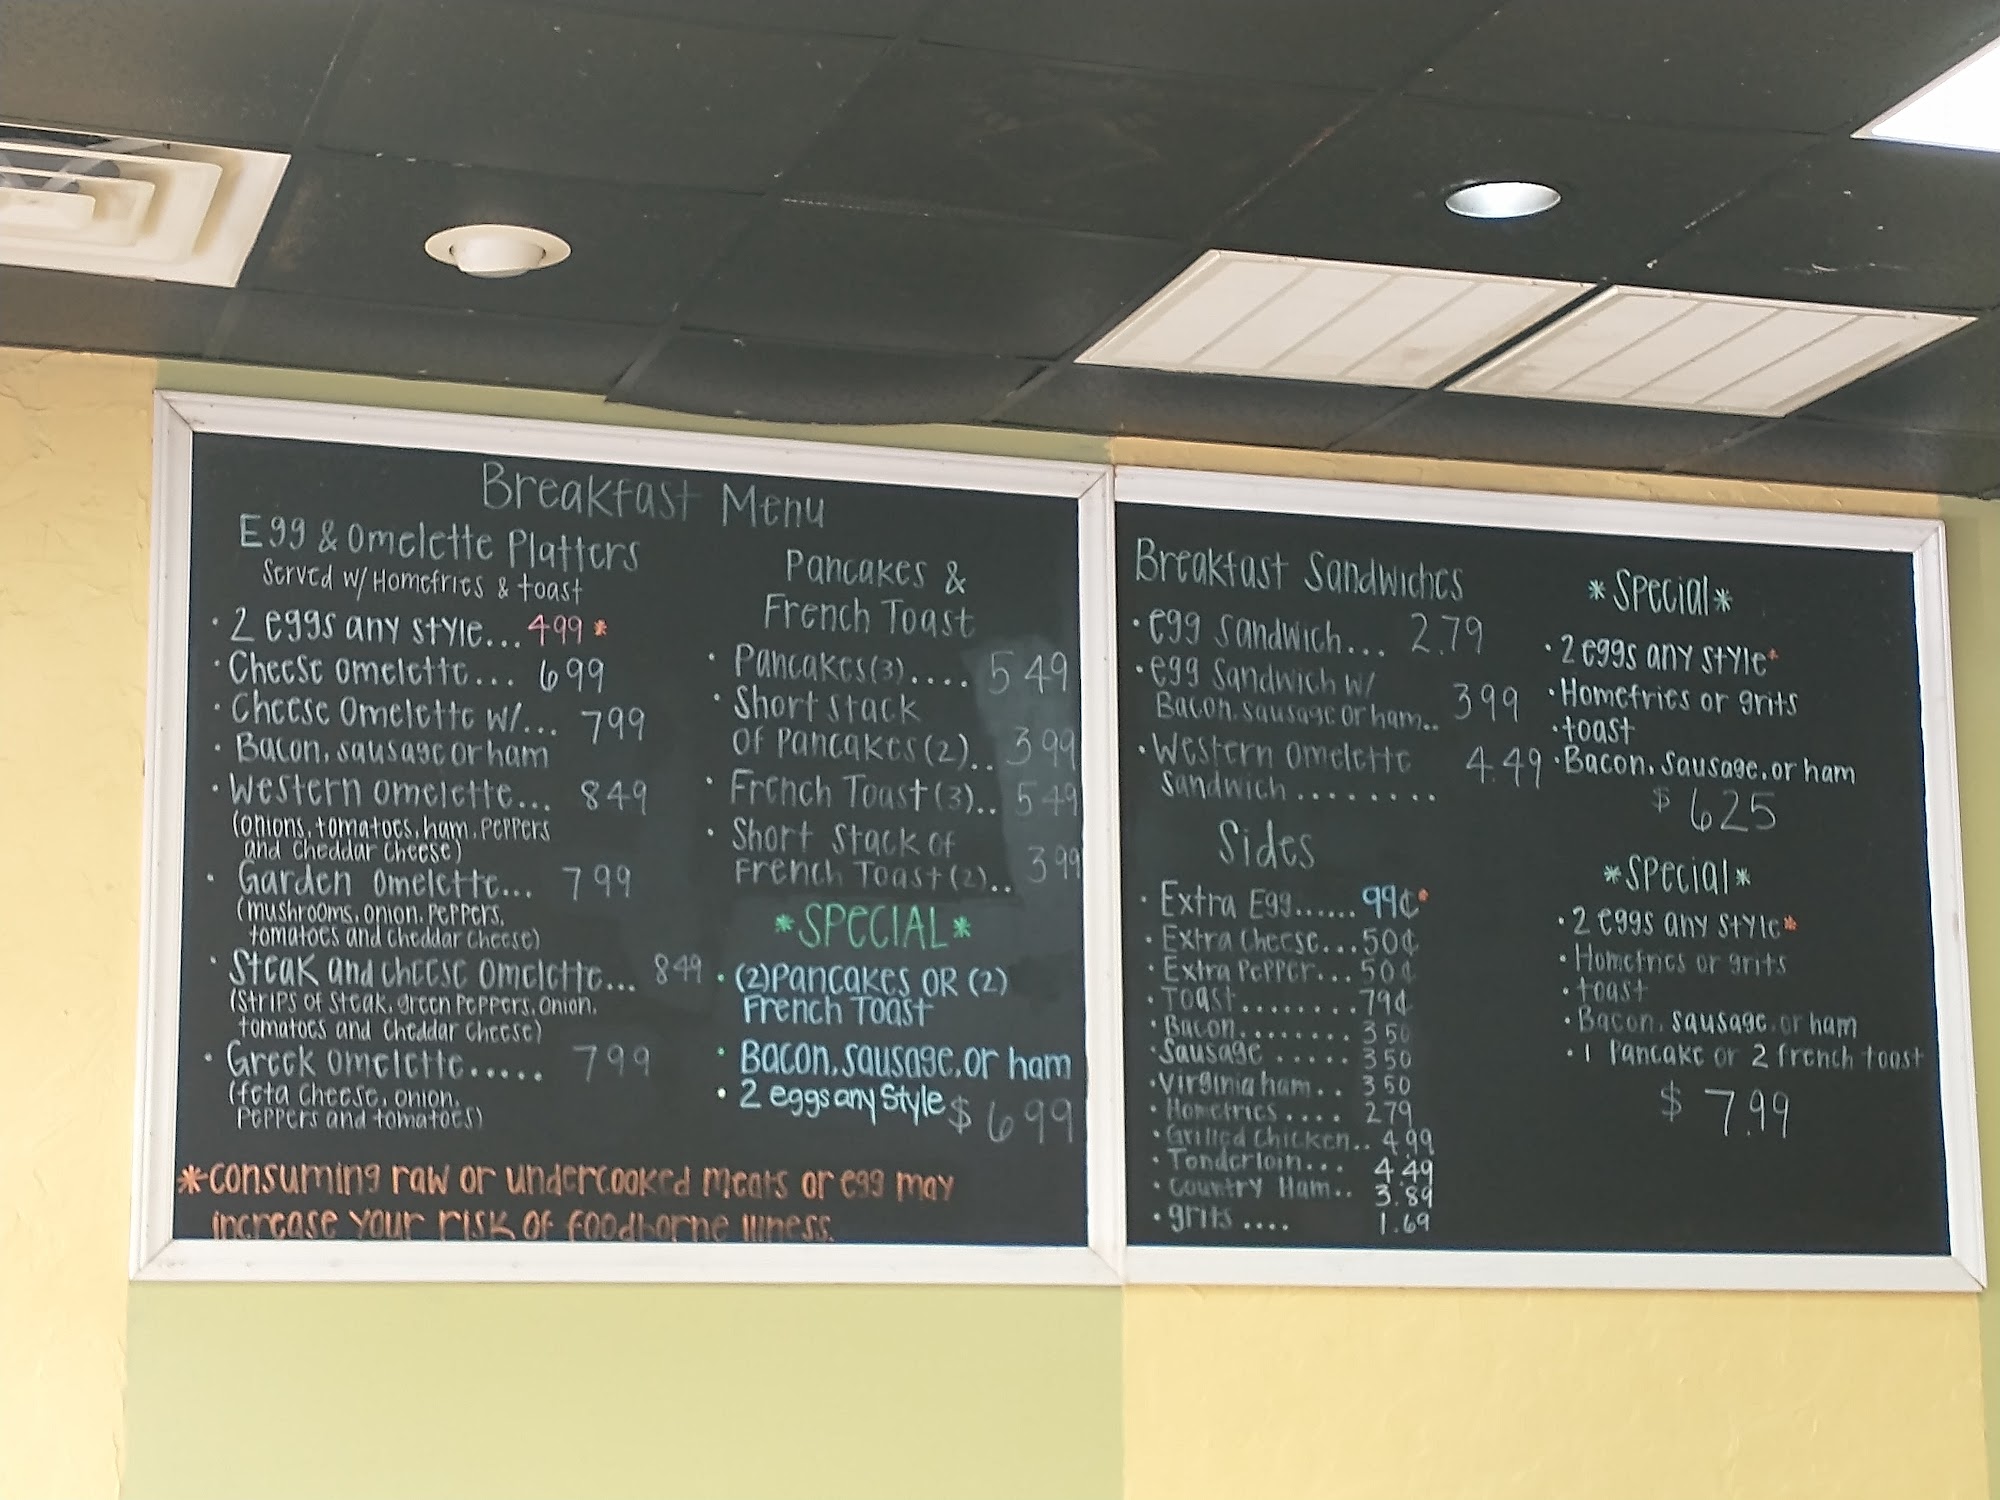 Breakfast Menu
Egg & Omelette Platters
Served w/ Homefries & toast
• 2 eggs any style... 499 *
• Cheese omelette... 699
• Cheese Omelette w/... 799
• Bacon, sausage or ham
• Western omelette... 849
(onions, tomatoes, ham, peppers
and cheddar cheese)
• Garden omelette... 799
(mushrooms, onion, peppers,
tomatoes and cheddar cheese)
• Steak and cheese omelette... 849
(strips of steak, green peppers, onion,
tomatoes and cheddar cheese)
• Greek omelette..... 799
(feta cheese, onion,
peppers and tomatoes)
Pancakes &
French Toast
• Pancakes (3).... 549
• Short stack
of pancakes (2).. 399
• French Toast (3).. 549
• Short Stack of
French Toast (2).. 399
*SPECIAL*
• (2) Pancakes OR (2)
French Toast
• Bacon, sausage, or ham
• 2 eggs any style $ 699
*consuming raw or undercooked meats or egg may
increase your risk of foodborne illness.
Breakfast Sandwiches
• egg sandwich... 2.79
• egg sandwich w/
Bacon, sausage or ham.. 399
• Western omelette
sandwich ........ 4.49
Sides
• Extra Egg...... 99¢*
• Extra Cheese... 50¢
• Extra Pepper... 50¢
• Toast......... 79¢
• Bacon........ 350
• Sausage ..... 350
• Virginia ham.. 350
• Homefries .... 279
• Grilled chicken.. 4.99
• Tonderloin... 4.49
• Country Ham.. 3.89
• grits .... 1.69
*Special*
• 2 eggs any style*
• Homefries or grits
• toast
• Bacon, sausage, or ham
$ 625
*Special*
• 2 eggs any style*
• Homefries or grits
• toast
• Bacon, sausage, or ham
• 1 pancake or 2 french toast
$ 7.99